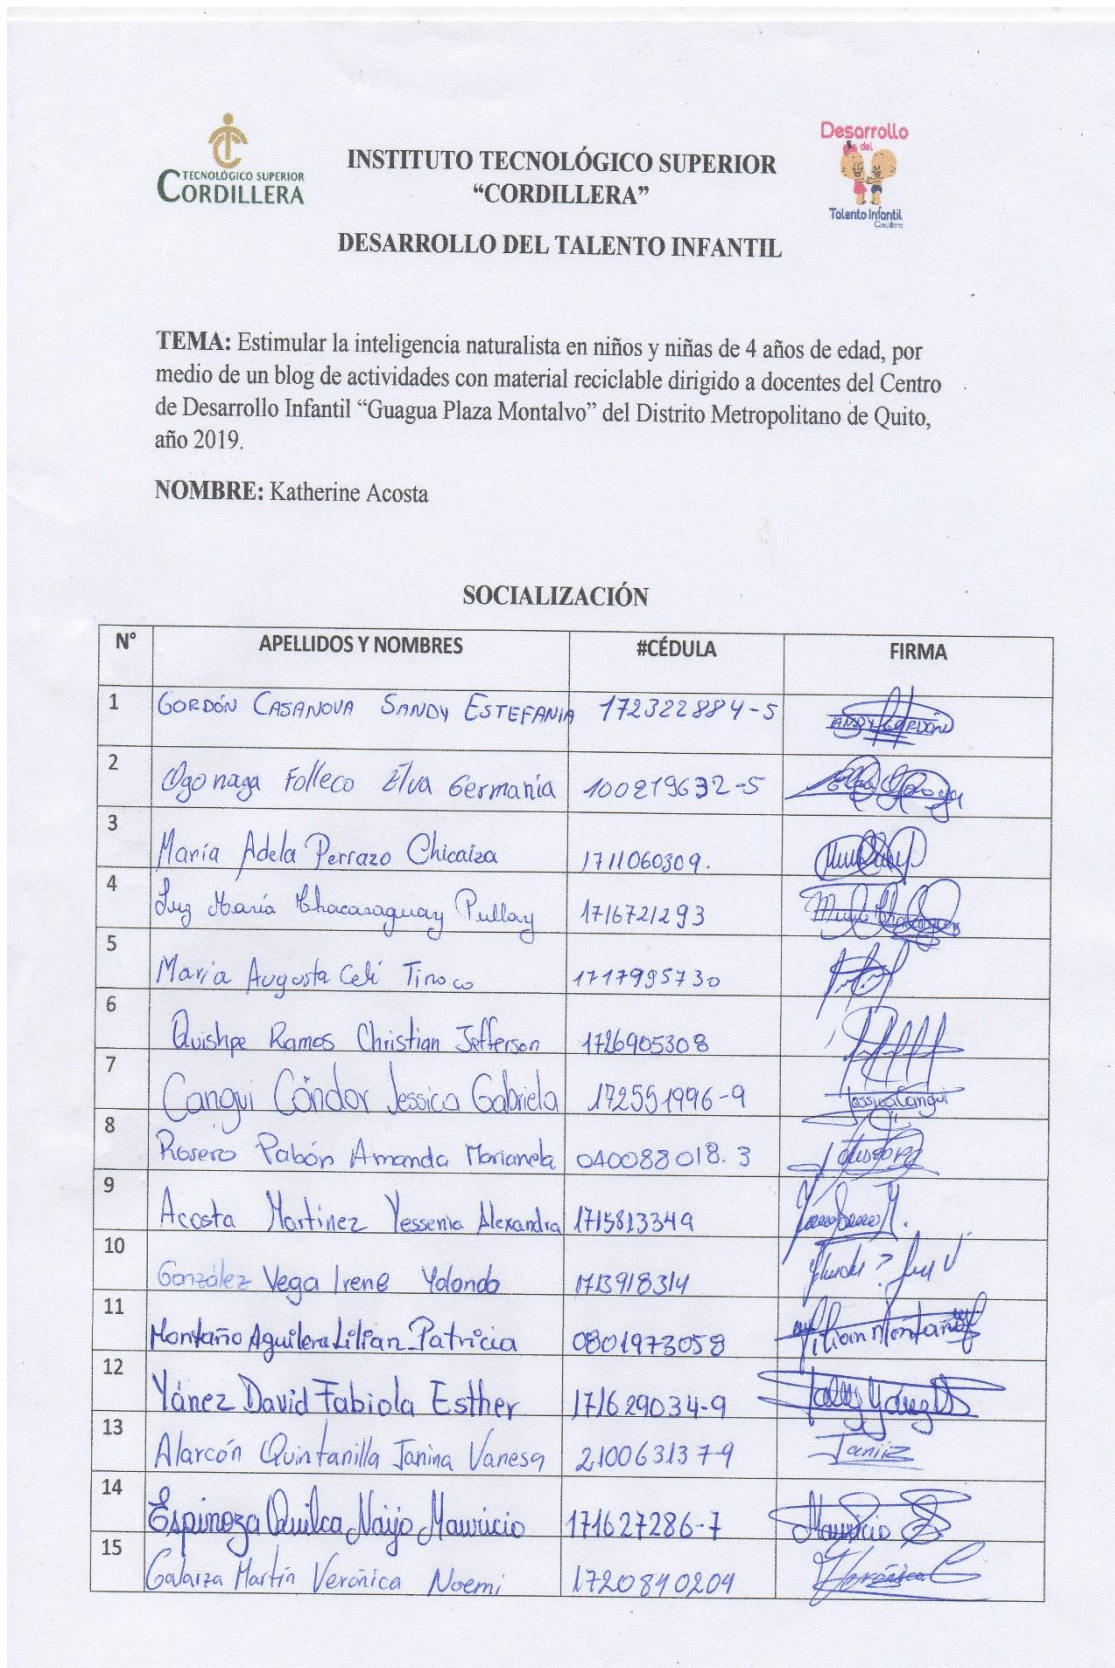 TECNOLÓGICO SUPERIOR
CORDILLERA
INSTITUTO TECNOLÓGICO SUPERIOR
“CORDILLERA”
Desarrollo
del
Talento Infantil
Cordillera
DESARROLLO DEL TALENTO INFANTIL
TEMA: Estimular la inteligencia naturalista en niños y niñas de 4 años de edad, por
medio de un blog de actividades con material reciclable dirigido a docentes del Centro
de Desarrollo Infantil “Guagua Plaza Montalvo” del Distrito Metropolitano de Quito,
año 2019.
NOMBRE: Katherine Acosta
SOCIALIZACIÓN
N° APELLIDOS Y NOMBRES #CÉDULA FIRMA
1 GORDÓN CASANOVA SANDY ESTEFANIA 172322884-5
2 Ogonaga Folleco Elva Germania 100279632-5
3 María Adela Perrazo Chicaiza 1711060309.
4 Luz María Chacasaguay Pullay 1716721293
5 Maria Augusta Celi Tinoco 1717995730
6 Quishpe Ramos Christian Jefferson 1726905308
7 Cangui Cóndor Jessica Gabriela 172551996-9 Jessica Cangui
8 Rosero Pabón Amanda Marianela 040088018.3
9 Acosta Martínez Yessenia Alexandra 1715813349
10 González Vega Irene Yolanda 1713918314
11 Montaño Aguilera Lilian Patricia 0801973058 Lilian Montaño
12 Yánez David Fabiola Esther 171629034-9
13 Alarcón Quintanilla Janina Vanesa 210063137-9
14 Espinoza Quilca Naijo Mauricio 171627286-7 Mauricio
15 Galarza Martín Verónica Noemi 1720840204 Verónica